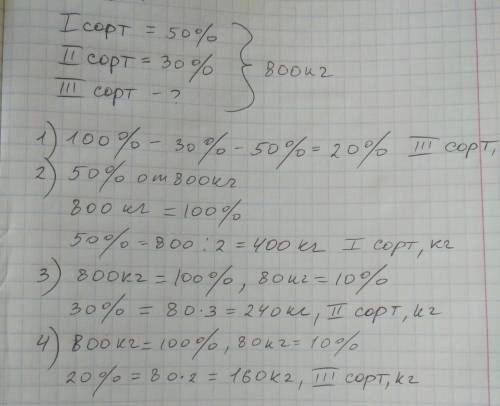 I сорт = 50%
II сорт = 30%
III сорт - ?
} 800кг
1) 100% - 30% - 50% = 20% III сорт,
2) 50% от 800кг
800 кг = 100%
50% = 800 : 2 = 400 кг I сорт, кг
3) 800кг = 100%, 80кг = 10%
30% = 80 · 3 = 240кг, II сорт, кг
4) 800кг = 100%, 80кг = 10%
20% = 80 · 2 = 160кг, III сорт, кг